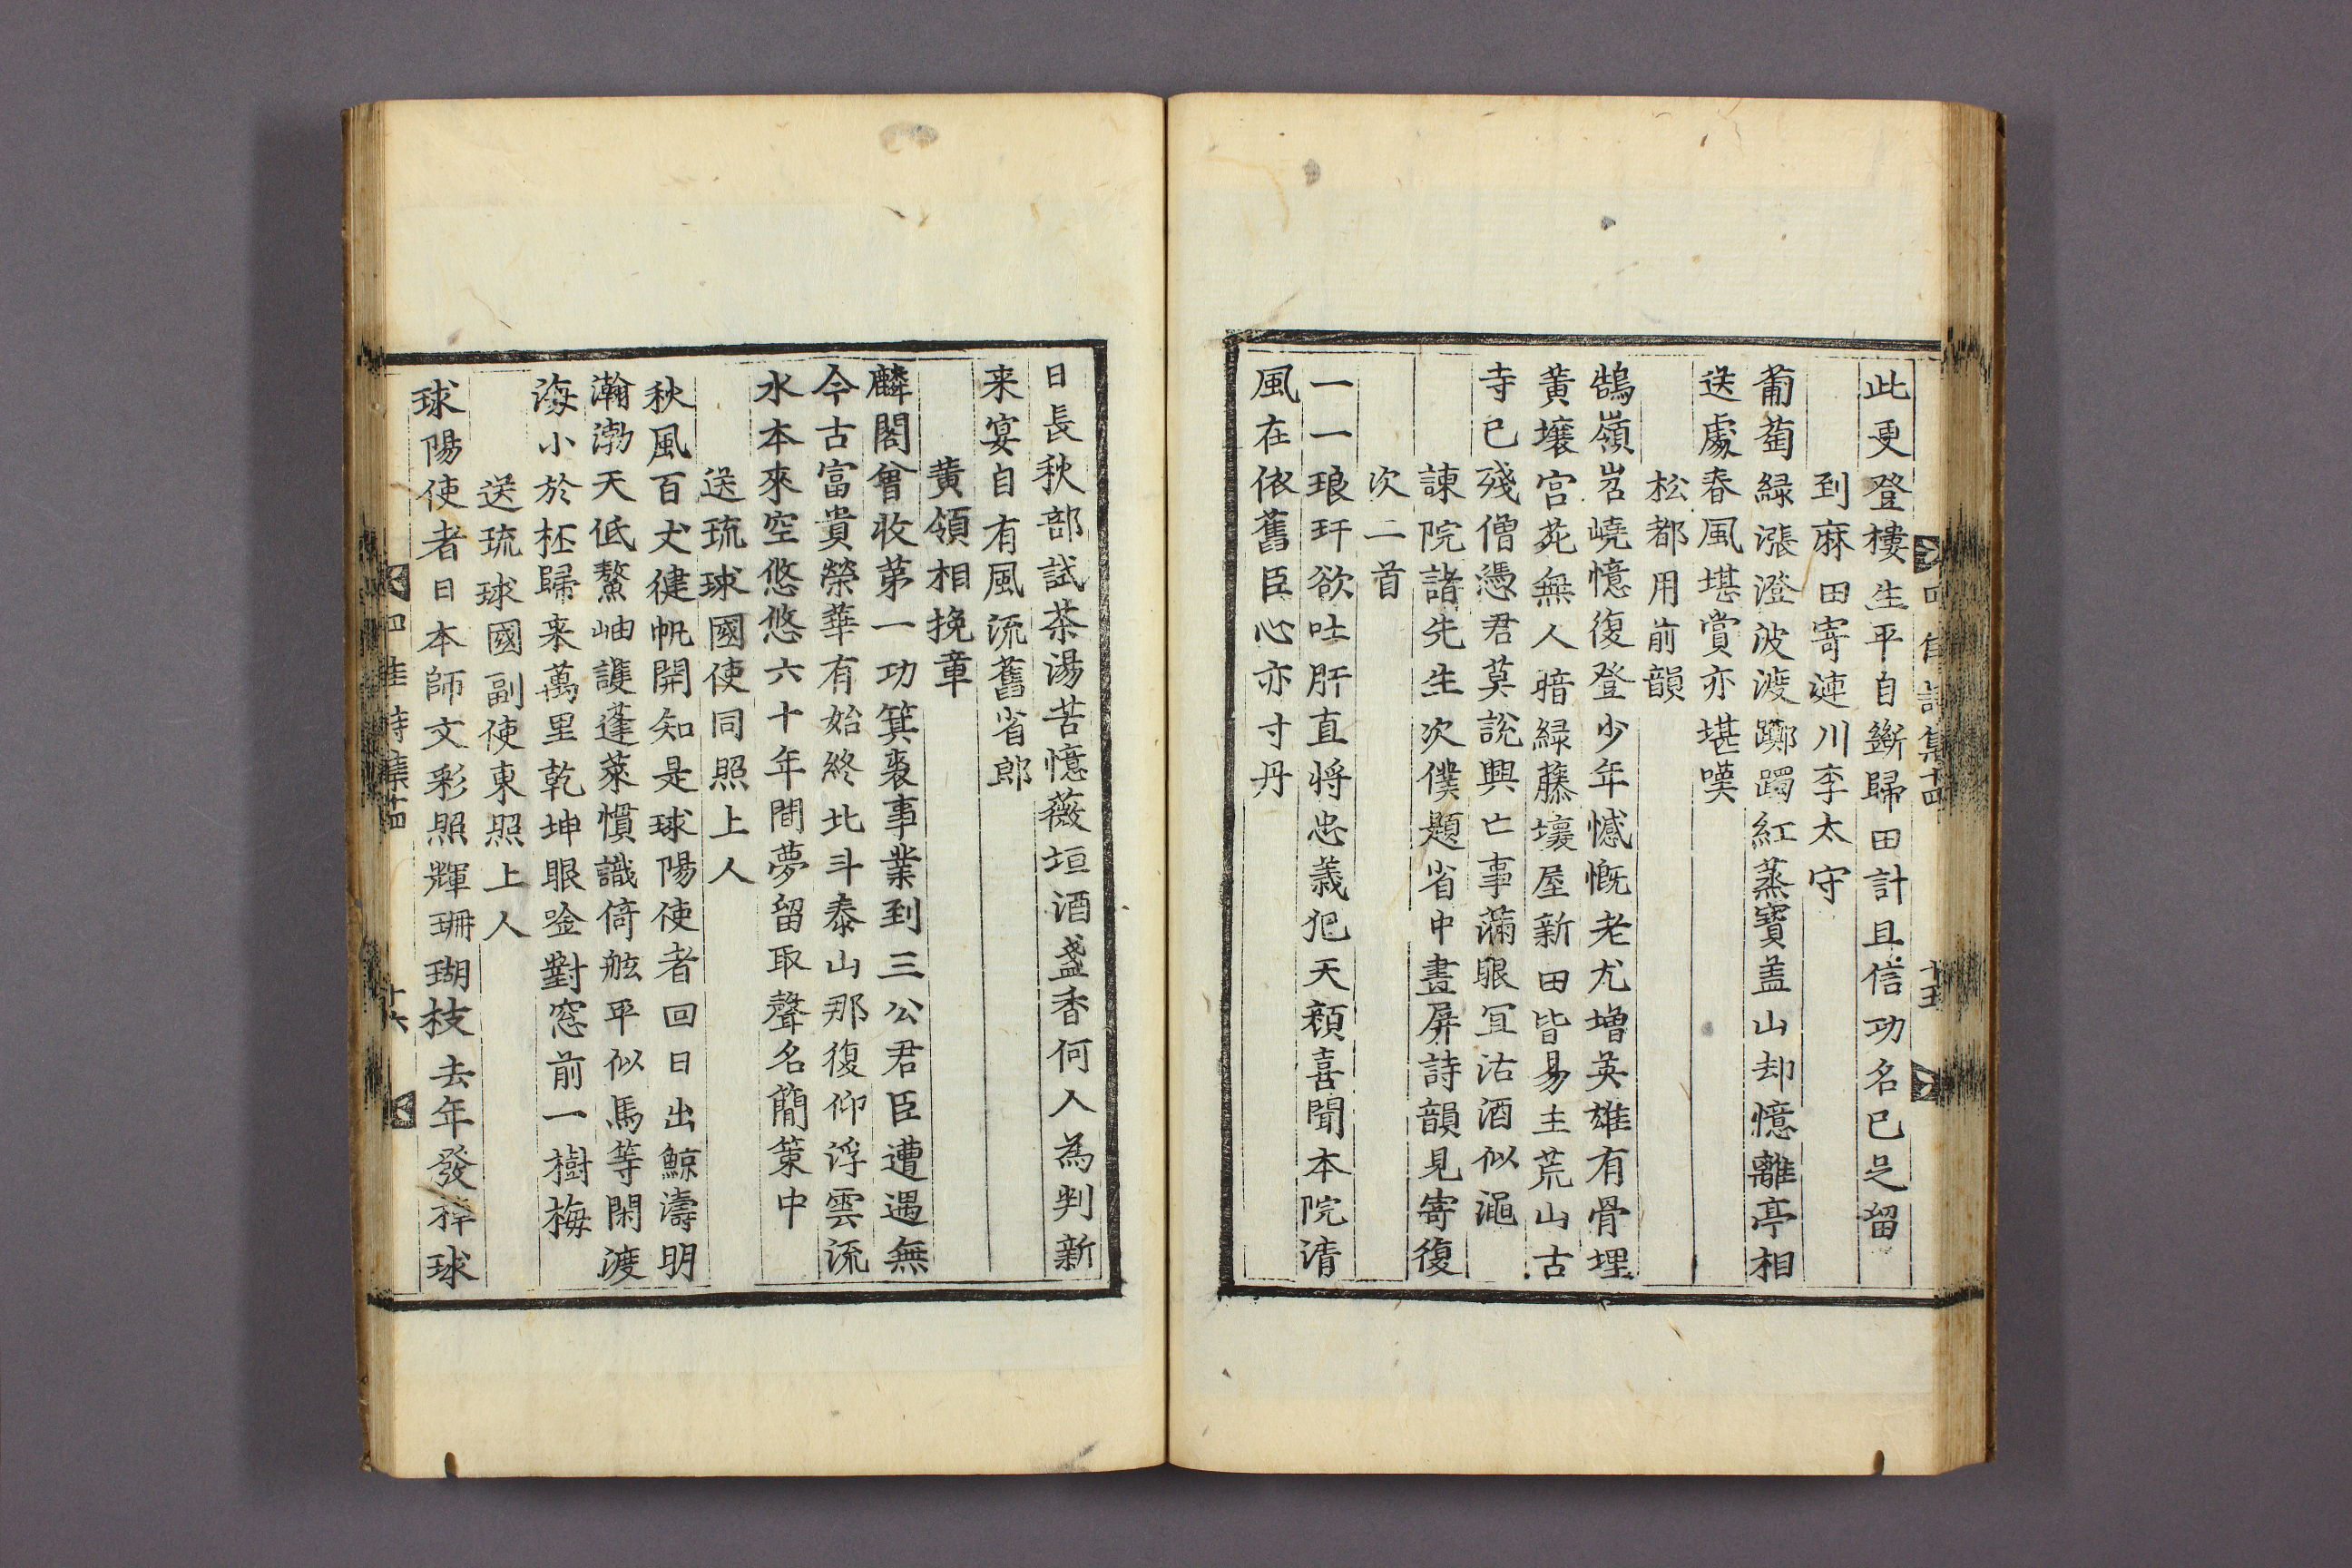 此更登樓生平自斷歸田計且信功名已足留
到麻田寄漣川李太守
葡萄緑漲澄波渡躑躅紅蒸寶盖山却憶離亭相
送處春風堪賞亦堪嘆
松都用前韻
鵠嶺岧嶢憶復登少年憾慨老尤增英雄有骨埋
黃壤宫苑無人暗緑藤壞屋新田皆易主荒山古
寺已殘僧憑君莫說興亡事滿眼宜沽酒似澠
諫院諸先生次僕題省中畫屏詩韻見寄復
次二首
一一琅玕欲吐肝直將忠義犯天顔喜聞本院清
風在依舊臣心亦寸丹
日長秋部試茶湯苦憶薇垣酒盞香何人為判新
来宴自有風流舊省郎
黄領相挽章
麟閣曾收第一功箕裘事業到三公君臣遭遇無
今古富貴榮華有始終北斗泰山那復仰浮雲流
水本來空悠悠六十年間夢留取聲名簡策中
送琉球國使同照上人
秋風百丈健帆開知是球陽使者回日出鯨濤明
瀚渤天低鰲岫護蓬萊慣識倚舷平似馬等閑渡
海小於杯歸来萬里乾坤眼唫對窓前一樹梅
送琉球國副使東照上人
球陽使者日本師文彩照輝珊瑚枝去年發 球
四佳詩集十四
十五
四佳詩集十四
十六